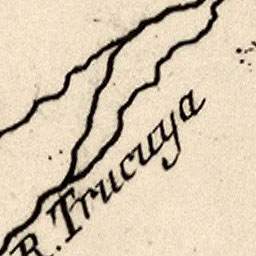 R. Trucuya